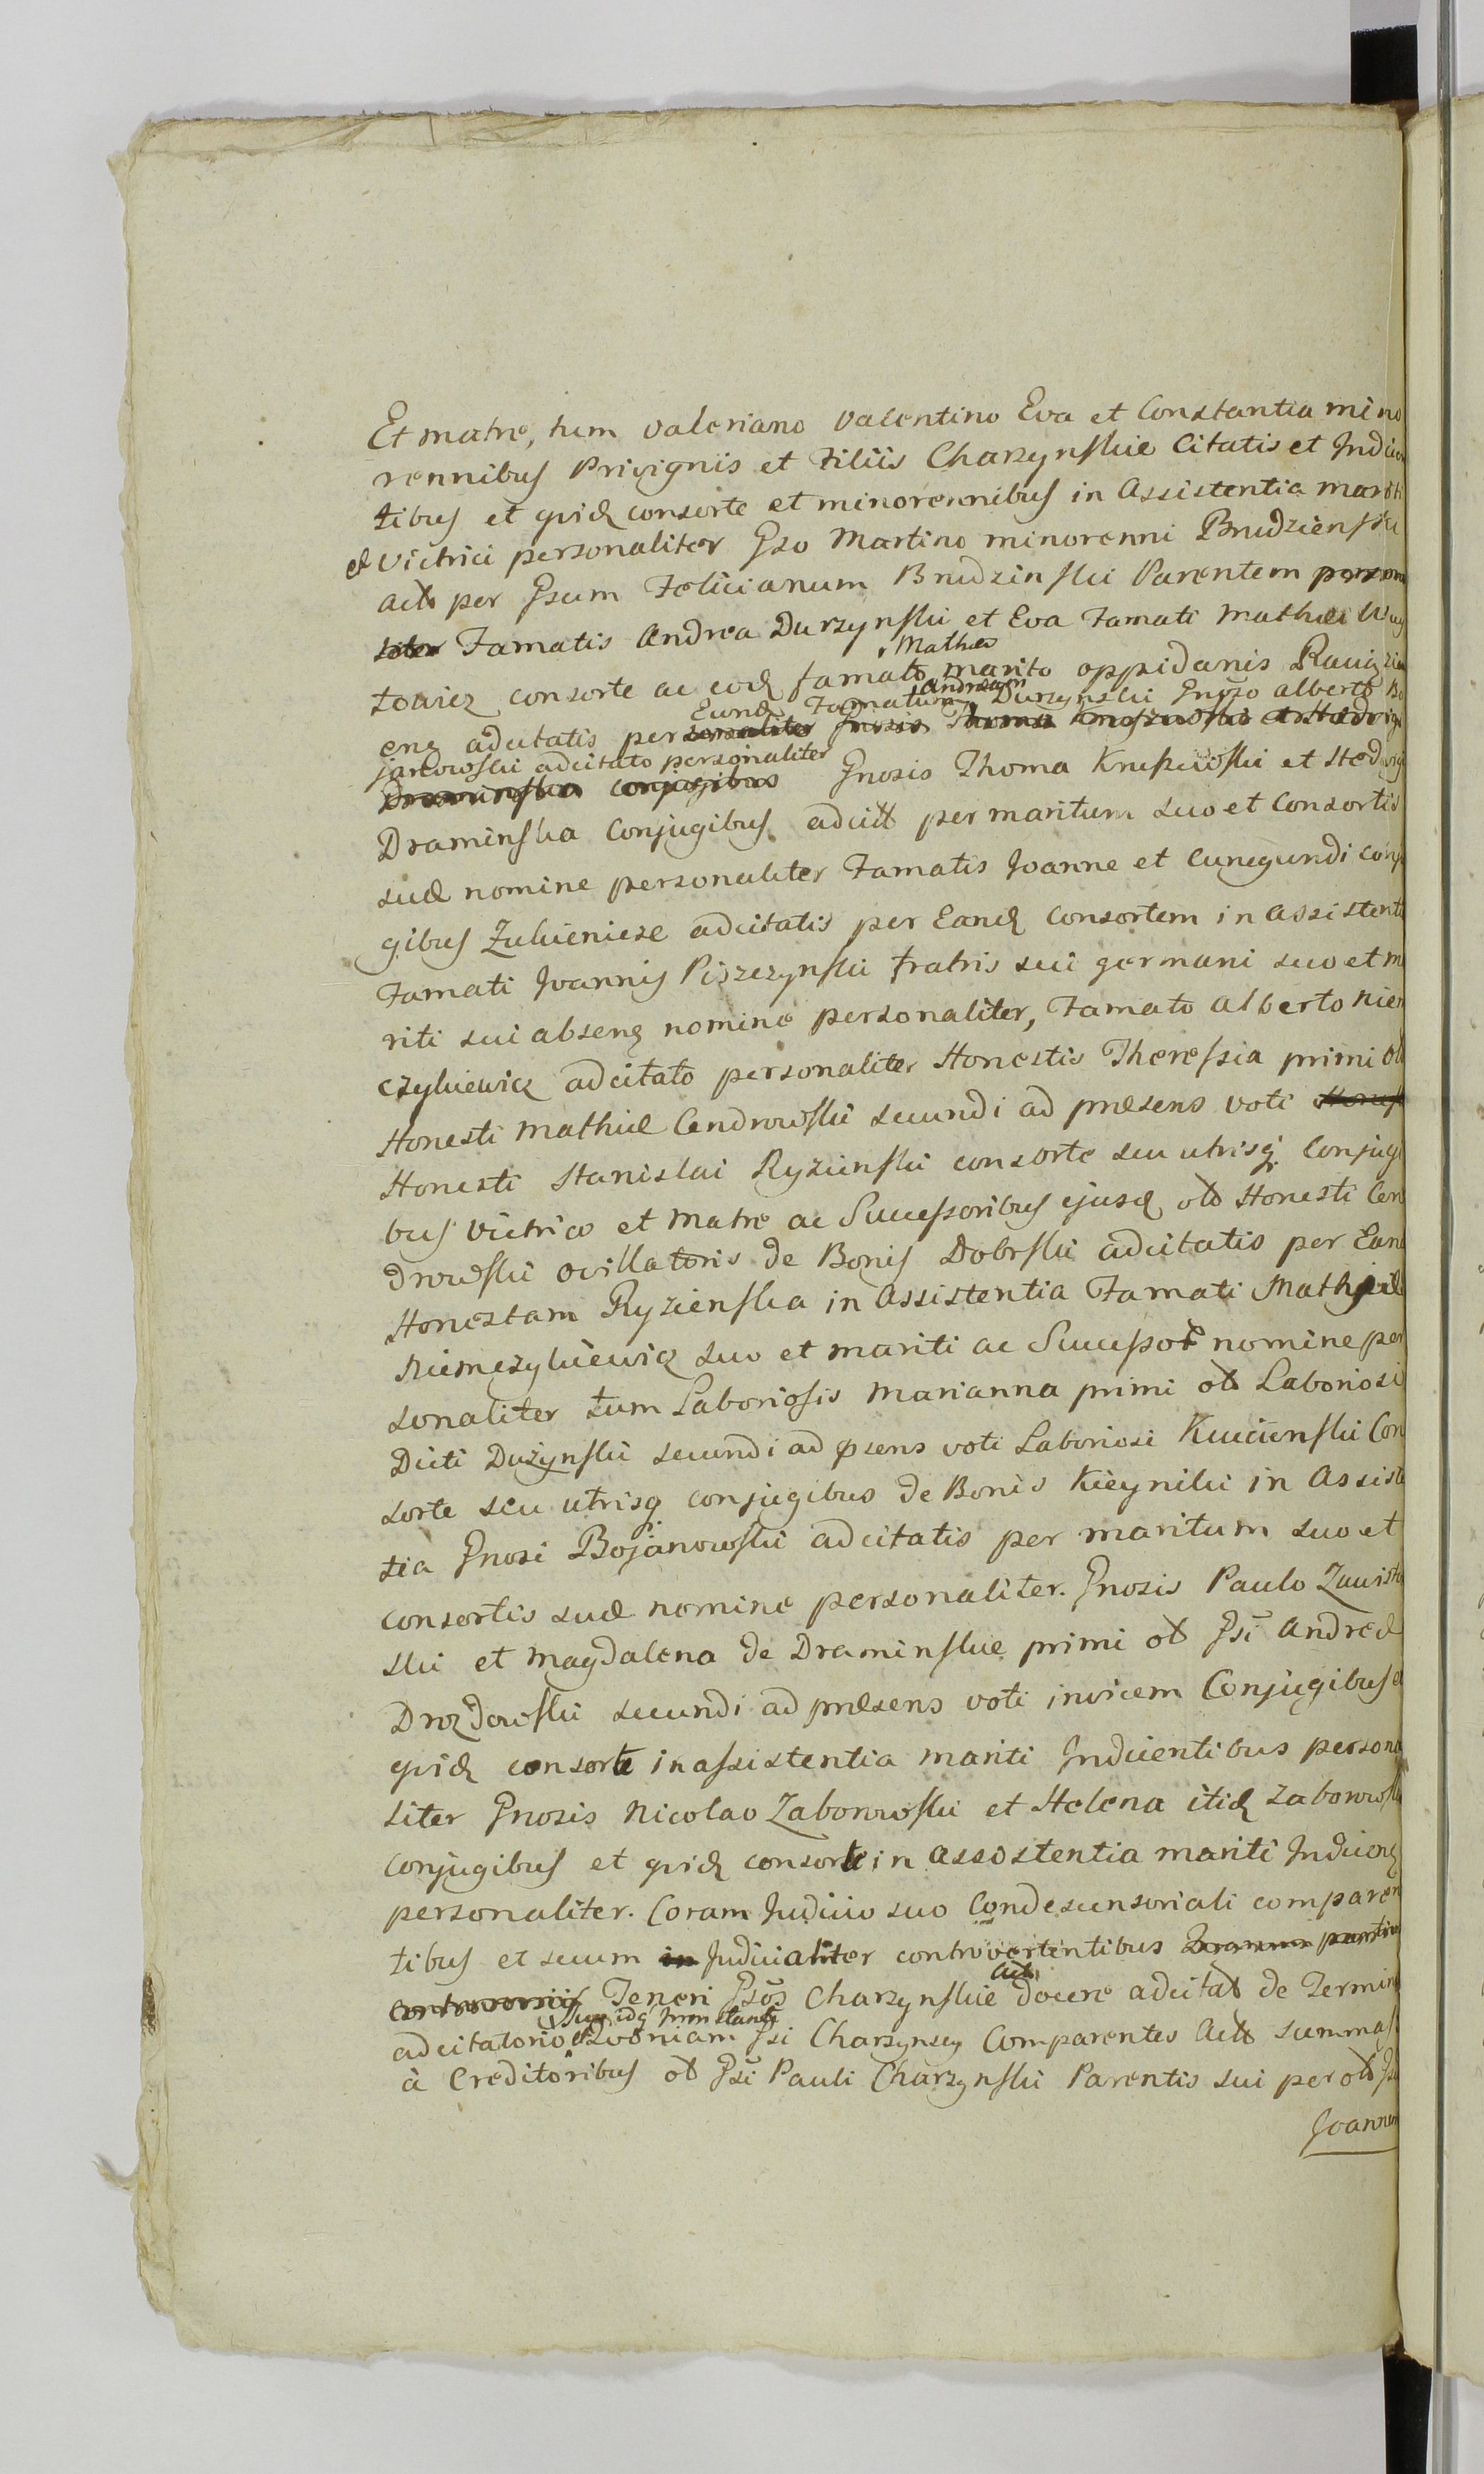 Et matre, tum Valeriano Valentino Eva et Constantia mino
rennibus Privignis et Filiis Charzynskie Citatis et Inducen
tibus et quidẽ consorte et minorennibus in Assistentia mariti
et Victrici personaliter Gso Martino minorenni Brudzinski
act per Gsum Felicianum Brudzinski Parentem persona
liter Famatis Andrea Durzynski et Eva Famati Mathiæ
towicz consorte ac eodẽ famato Mathia marito oppidanis Raciąż
enẽ adcitatis per Eundẽ Famatum Andream Durzynski Gnoso Alberto Bo
janowski adcitato personaliter
Draminska conjugibus Gnosis Thoma Krupiewski et Hedvigi
Draminska Conjugibus adcitt per maritum suo et Consortis
suæ nomine personaliter Famatis Joanne et Cunegundi conju
gibus Zukienicze adcitatis per Eandẽ Consortem in Assistenti
Famati Joannis Piszczynski Fratris sui germani suo et ma
riti sui absenẽ nomine personaliter, Famato Alberto Niem
czykiewicz adcitato personaliter Honestis Theressia primi ol
Honesti Mathiæ Cendrowski secundi ad præsens voti
Honesti Stanislai Ryzienski consorte seu utrisq Conjugi
bus Victrico et Matre ac Successoribus ejusdẽ olb Honesti Cen
drowski ovillatoris de Bonis Dobrski adcitatis per Eand
Honestam Ryzienska in Assistentia Famati Mathiæ
Niemczykiewicz suo et mariti ac Successor nomine per
sonaliter tum Laboriosis Marianna primi olb Laboriosi
Dicti Dużynski secundi ad psens voti Laboriosi Kucienski Con
sorte seu utrisq conjugibus de Bonis Kieyniki in Assiste
tia Gnosi Bojanowski adcitatis per maritum suo et
consortis suæ nomine personaliter. Gnosis Paulo Zawisto
ski et Magdalena de Draminskie primi olb Gsi Andreæ
Drozdowski secundi ad præsens voti invicem Conjugibus et
quidẽ consorte in assistentia mariti Inducentibus persona
liter Gnosis Nicolao Zaborowski et Helena itidẽ Zaborowsk
conjugibus et quidẽ consorte in Assistentia mariti Inducenẽ
personaliter. Coram Judicio suo Condescensoriali comparen
tibus et secum in Judicialiter controvertentibus
controversiis Teneri Gsos Charzynskie act docere adcitat de Termino
adcitatorio Quoniam Gsi Charzynscy Comparentes Act summas
à Creditoribus olb Gsi Pauli Charzynski Parentis sui per olb Gs
Joannem